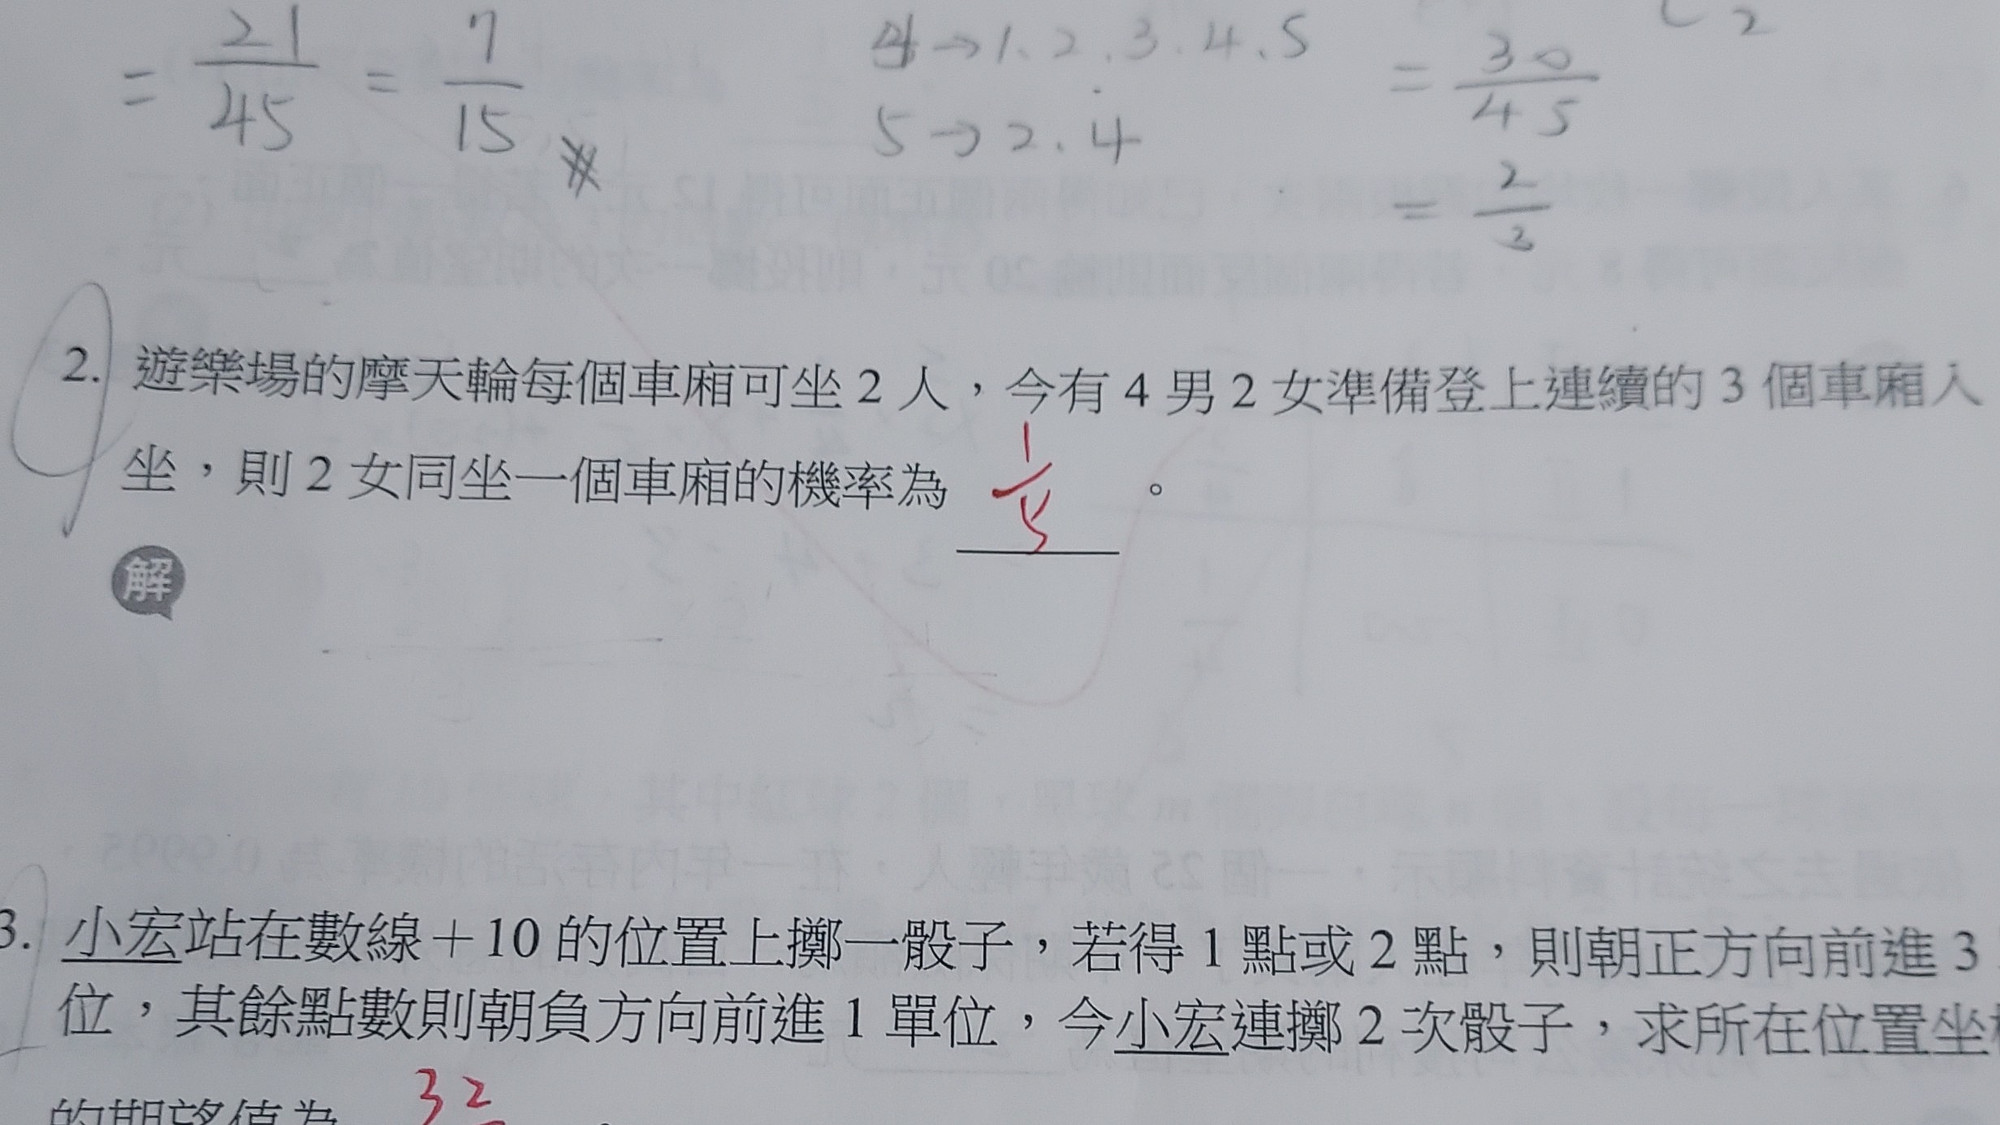 = 21/45 = 7/15 ※
4→1.2.3.4.5
5→2.4
= 30/45
= 2/3
2. 遊樂場的摩天輪每個車廂可坐 2 人，今有 4 男 2 女準備登上連續的 3 個車廂入
坐，則 2 女同坐一個車廂的機率為 1/5 。
解
3. 小宏站在數線＋10 的位置上擲一骰子，若得 1 點或 2 點，則朝正方向前進 3
位，其餘點數則朝負方向前進 1 單位，今小宏連擲 2 次骰子，求所在位置坐
的期望值為 32 。